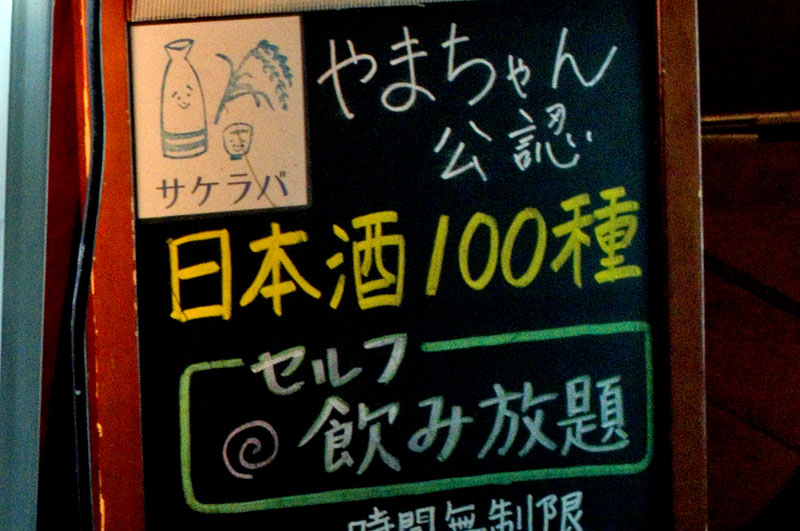 サケラバ
やまちゃん
公認
日本酒100種
セルフ
飲み放題
時間無制限